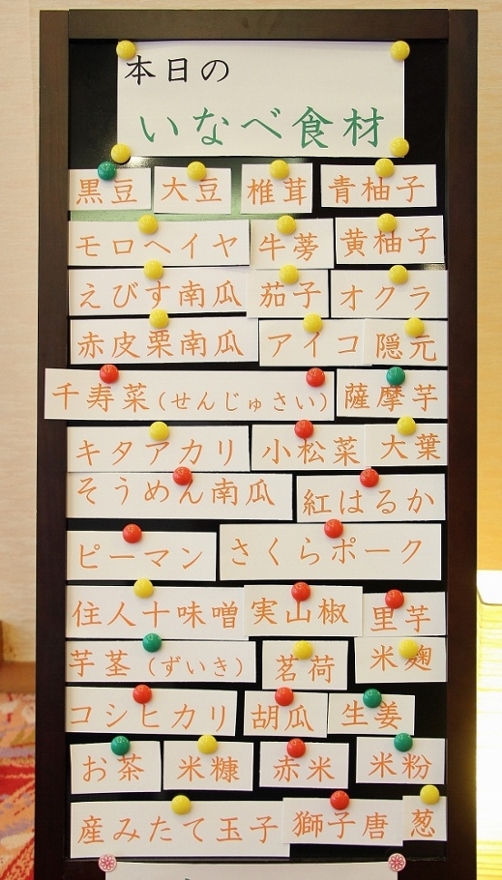 本日の
いなべ食材
黒豆 大豆 椎茸 青柚子
モロヘイヤ 牛蒡 黄柚子
えびす南瓜 茄子 オクラ
赤皮栗南瓜 アイコ 隠元
千寿菜(せんじゅさい) 薩摩芋
キタアカリ 小松菜 大葉
そうめん南瓜 紅はるか
ピーマン さくらポーク
住人十味噌 実山椒 里芋
芋茎(ずいき) 茗荷 米麹
コシヒカリ 胡瓜 生姜
お茶 米糠 赤米 米粉
産みたて玉子 獅子唐 葱